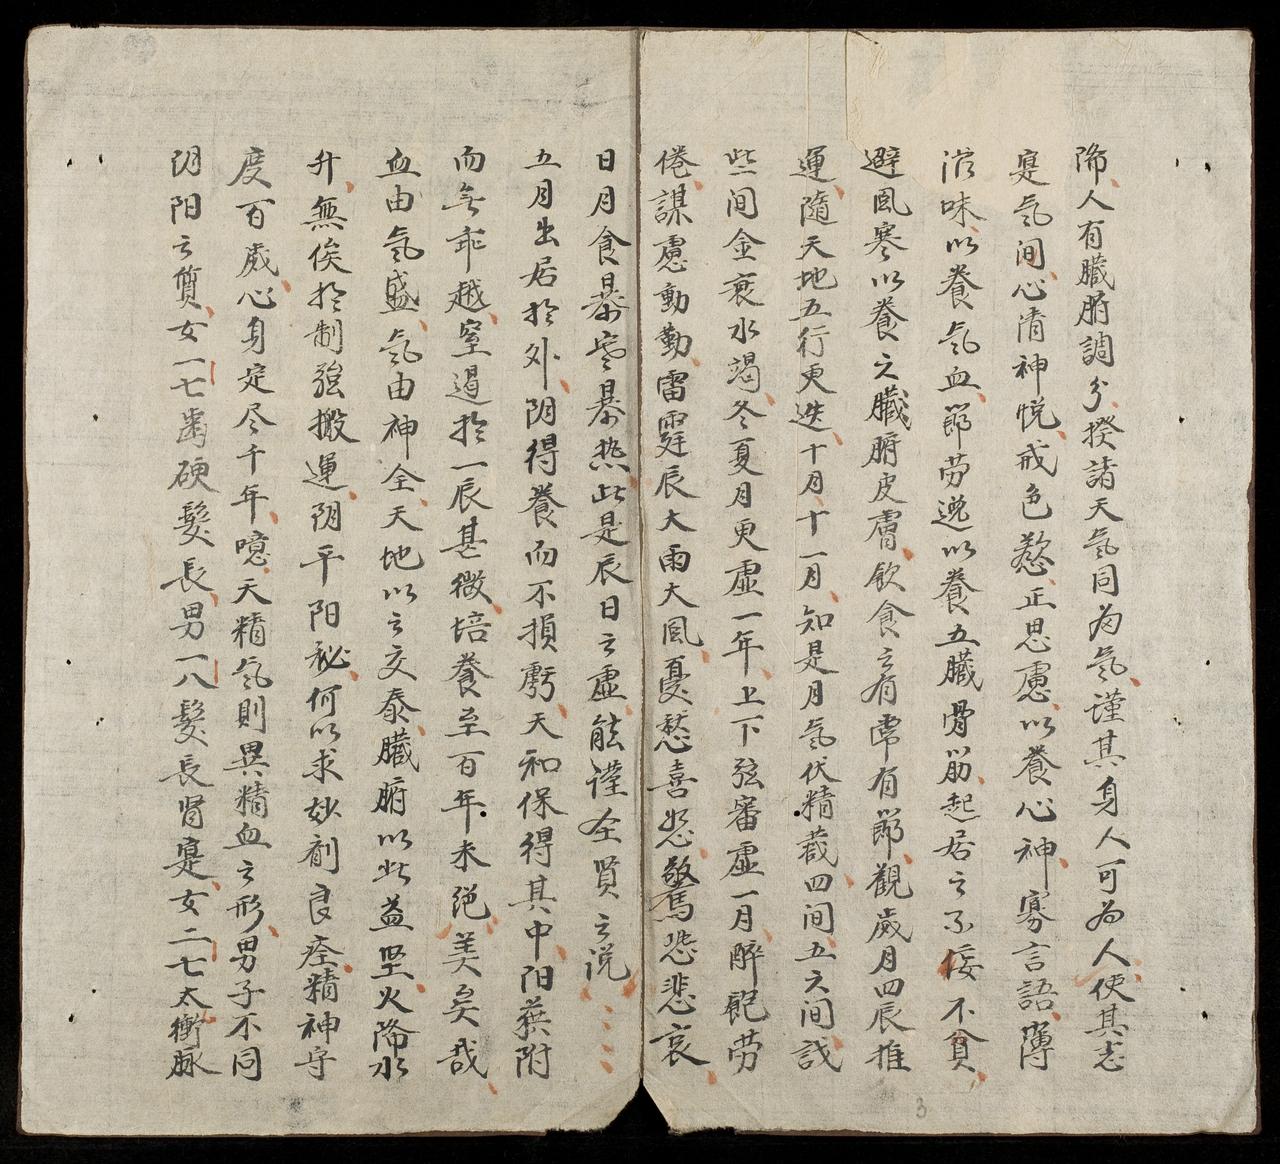 降人有臟腑調分揆諸天氣同為氣謹其身人可為人使其志
寔氣间心清神悅戒色慾正思慮以養心神寡言語薄
滋味以養氣血節劳逸以養五臟骨筋起居之不倿不貧
避風寒以養之臟腑皮膚飲食之有常有節觀歲月四辰推
運隨天地五行更迭十月十一月知是月氣伏精蔵四间五六间戓
些间金衰水竭冬夏月更虛一年上下弦審虛一月醉飽劳
倦謀慮動勤雷霆辰大雨大風憂愁喜怒驚恐悲哀
日月食暴寒暴热此是辰日之虛能謹全贤之说
五月出居於外阴得養而不損虧天和保得其中阳獲附
而无乖越窒遏於一辰甚微培養至百年未绝美矣哉
血由氣盛氣由神全天地以之交泰臟腑以此益坚火降水
升無俟於制強搬運阴平阳秘何以求妙剤良痊精神守
度百歲心身定尽千年噫天精氣則異精血之形男子不同
阴阳之質女一七歯硬髮長男一八髮長肾寔女二七太衝脉
3